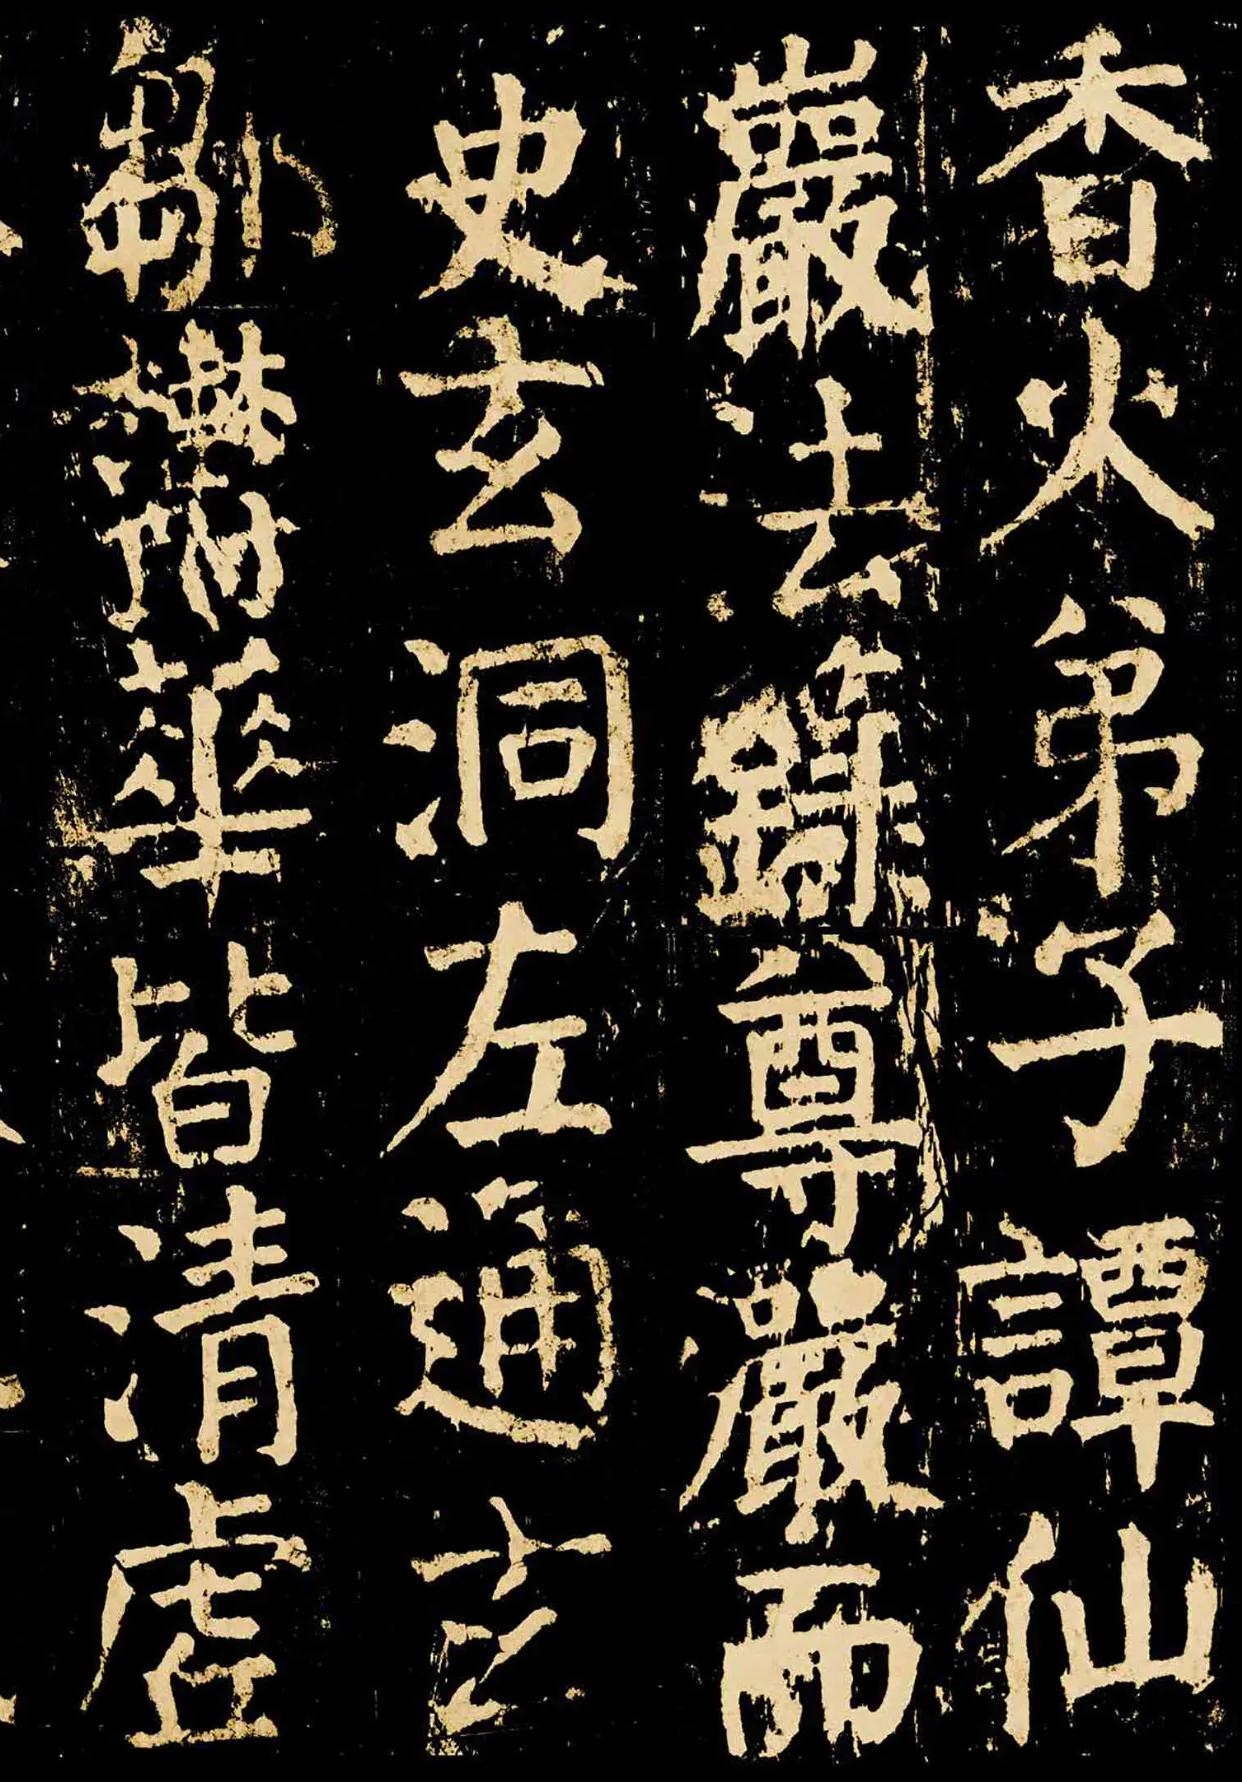 香火弟子譚仙
巖法錄尊嚴而
史玄洞左通玄
鄒鬱華皆清虛